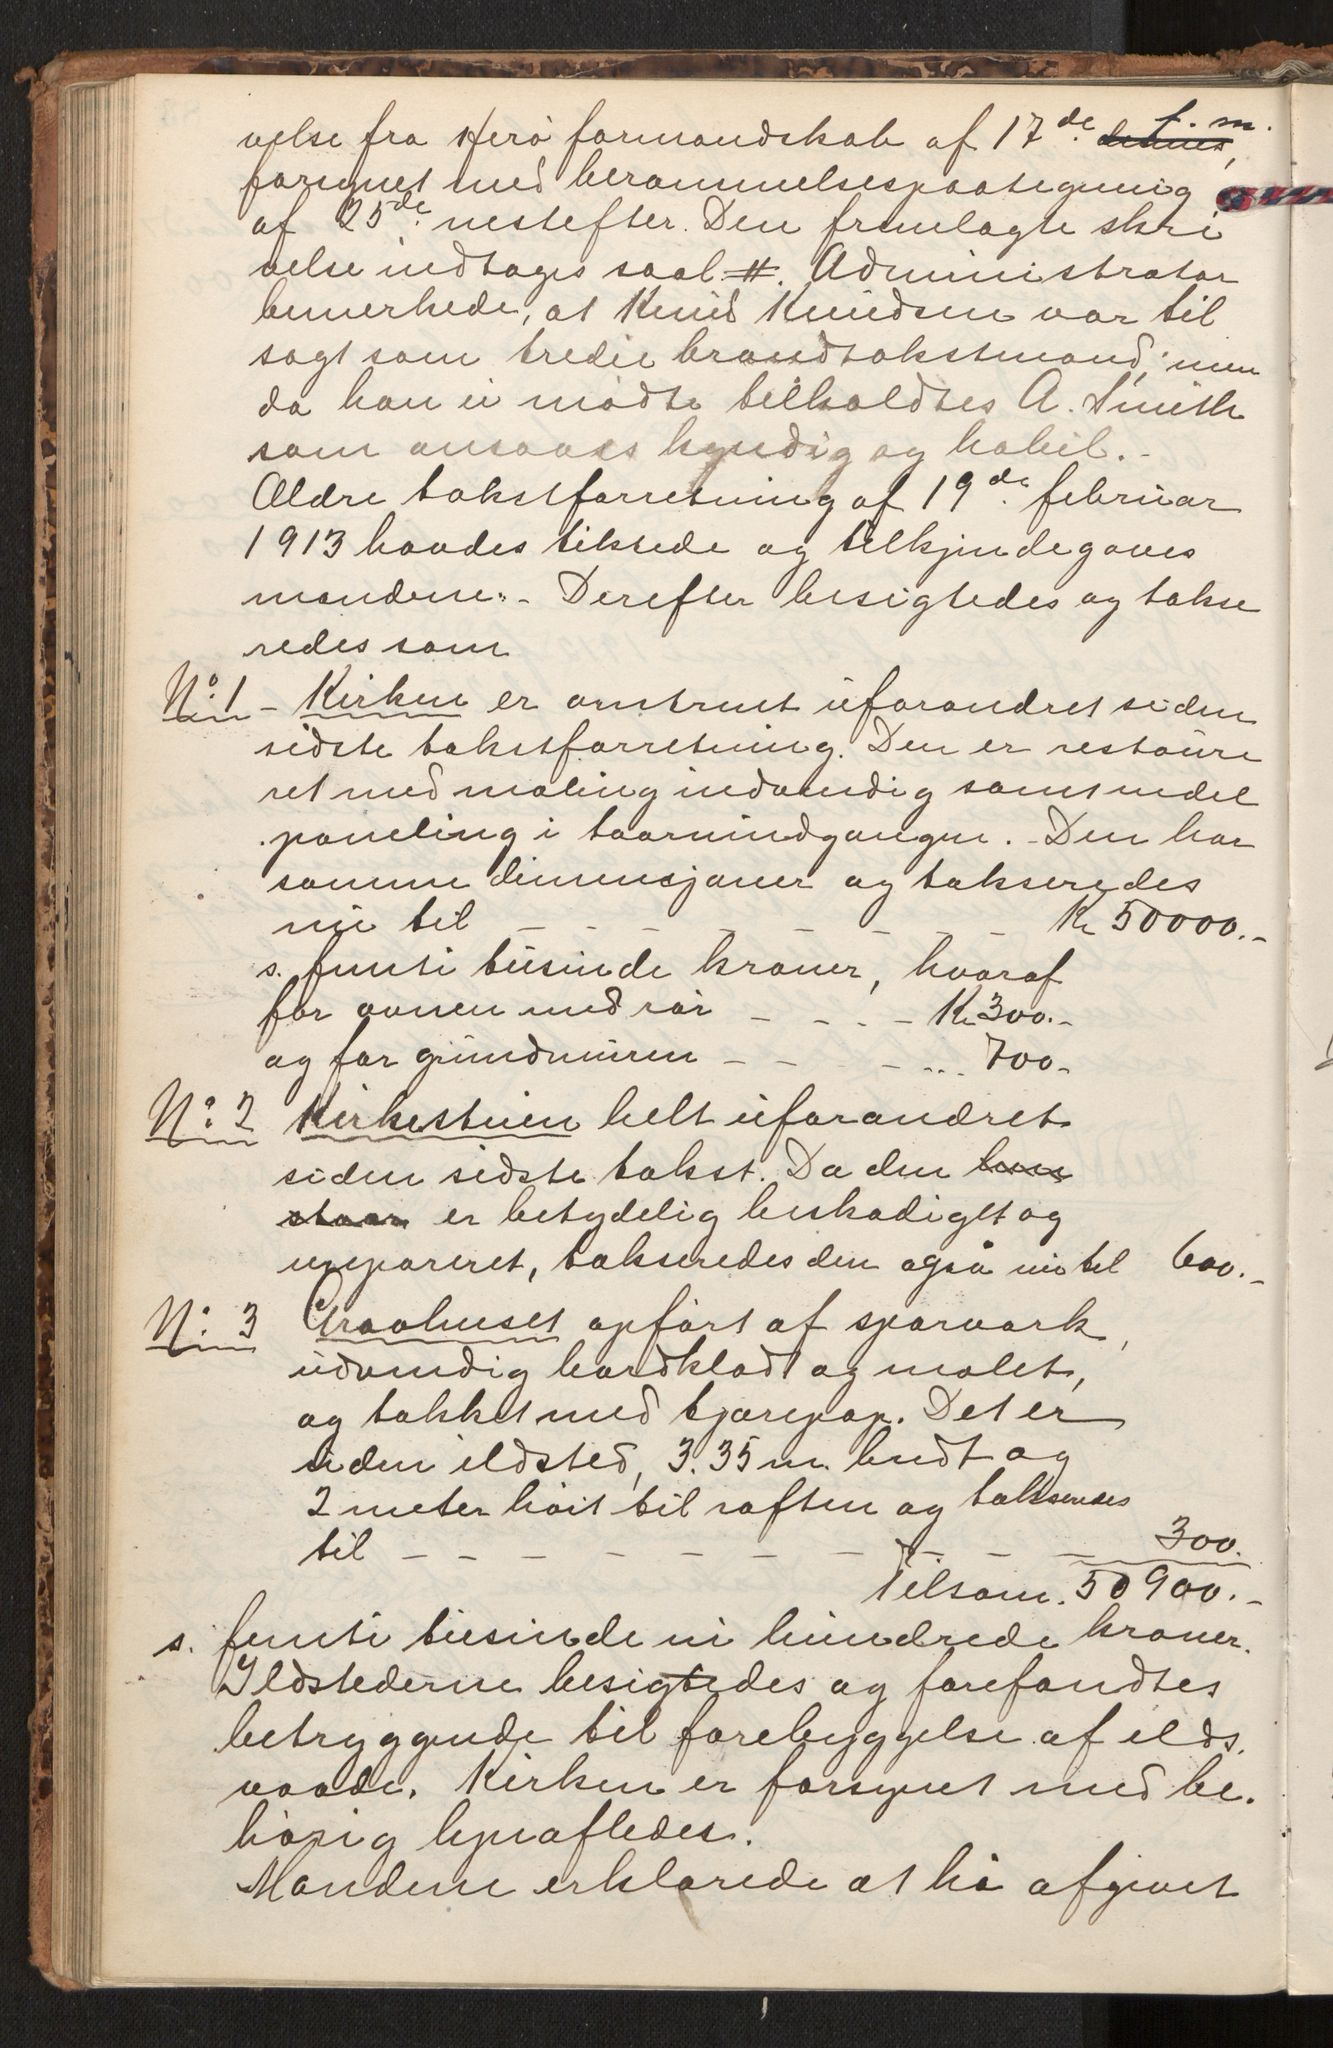 velse fra Herø formandskab af 17de f. m. dennes,
forsynet med berammelsespaategning
af 25de nestefter. Den fremlagte skri
velse indtages saal. #. Administrator
bemerkede, at Knud Knudsen var til
sagt som tredie brandtakstmand, men
da han ei mødte tilkaldtes A. Smith
som ansaaes kyndig og habil.-
Ældre takstforretning af 19de februar
1913 havdes tilstede og tilkjendegaves
mændene.- Derefter besigtedes og takse
redes som
No. 1 - Kirken er omtrent uforandret siden
sidste takstforretning. Den er restaure
ret med maling indvendig samt endel
paneling i taarnindgangen. - Den har
samme dimensjoner og takseredes
nu til - - - - - - - - Kr 50000.-
s. femti tusinde kroner, hvoraf
for ovnen med rør - - - - Kr 300.-
og for grundmuren - - - - ... 700.-
No. 2 Kirkestuen helt uforandret
siden sidste takst. Da den
staar er betydelig beskadiget og
urepareret, takseredes den også nu til 600.-
No. 3 Gravhuset opført af sparværk,
udvendig bordklædt og malet,
og tækket med tjærepap. Det er
uden ildsted, 3.35 m. bredt og
2 meter høit til raften og takseredes
til - - - - - - - - - - 300.
Tilsam. 50900.-
s. femti tusinde ni hundrede kroner.
Ildstederne besigtedes og forefandtes
betryggende til forebyggelse af ilds.
vaade. Kirken er forsynet med be.
hørig lynafleder.
Mændene erklærede at ha afgivet